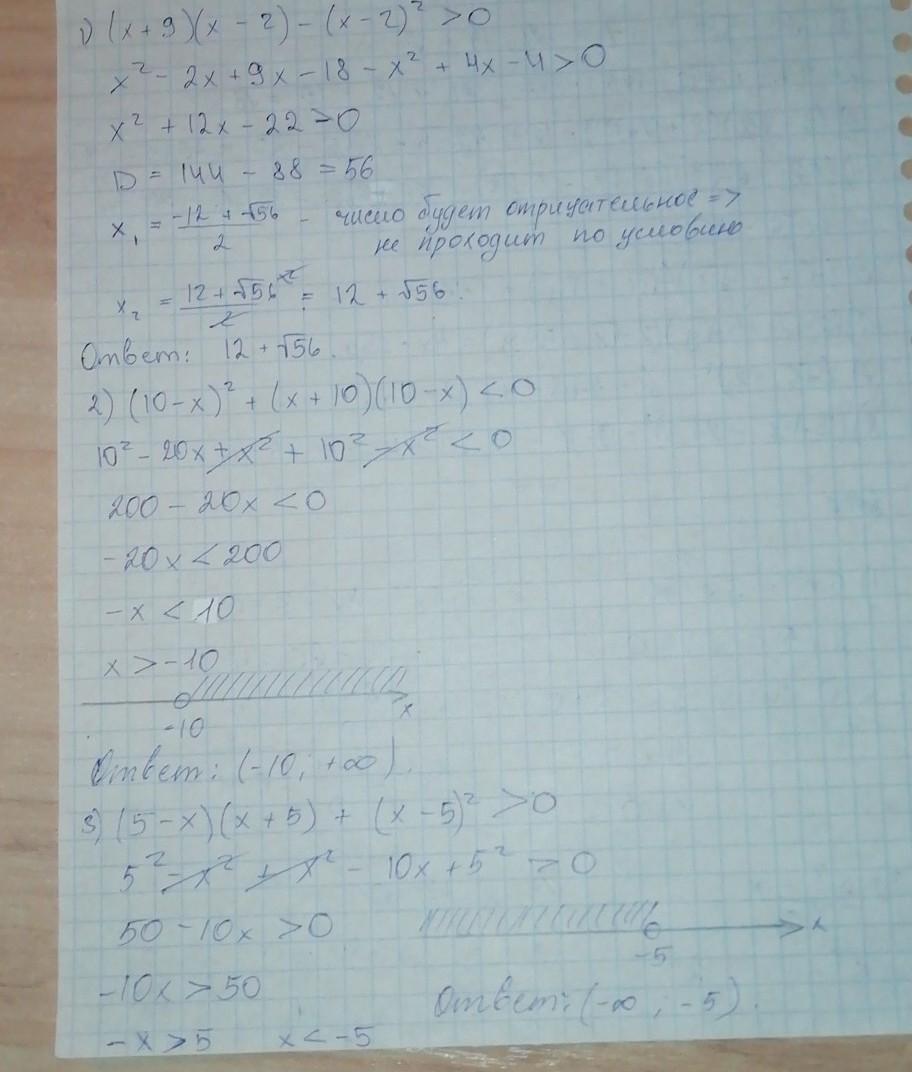 1) (x + 9)(x - 2) - (x - 2)² > 0
x² - 2x + 9x - 18 - x² + 4x - 4 > 0
x² + 12x - 22 > 0
D = 144 - 88 = 56
x₁ = (-12 + √56)/2 - число будет отрицательное =>
не проходит по условию
x₂ = (12 + √56 ×2)/2 = 12 + √56.
Ответ: 12 + √56.
2) (10 - x)² + (x + 10)(10 - x) < 0
10² - 20x + x² + 10² - x² < 0
200 - 20x < 0
-20x < 200
-x < 10
x > -10
-10 x
Ответ: (-10; +∞).
3) (5 - x)(x + 5) + (x - 5)² > 0
5² - x² + x² - 10x + 5² > 0
50 - 10x > 0
-10x > 50
-x > 5 x < -5
x
-5
Ответ: (-∞; -5).